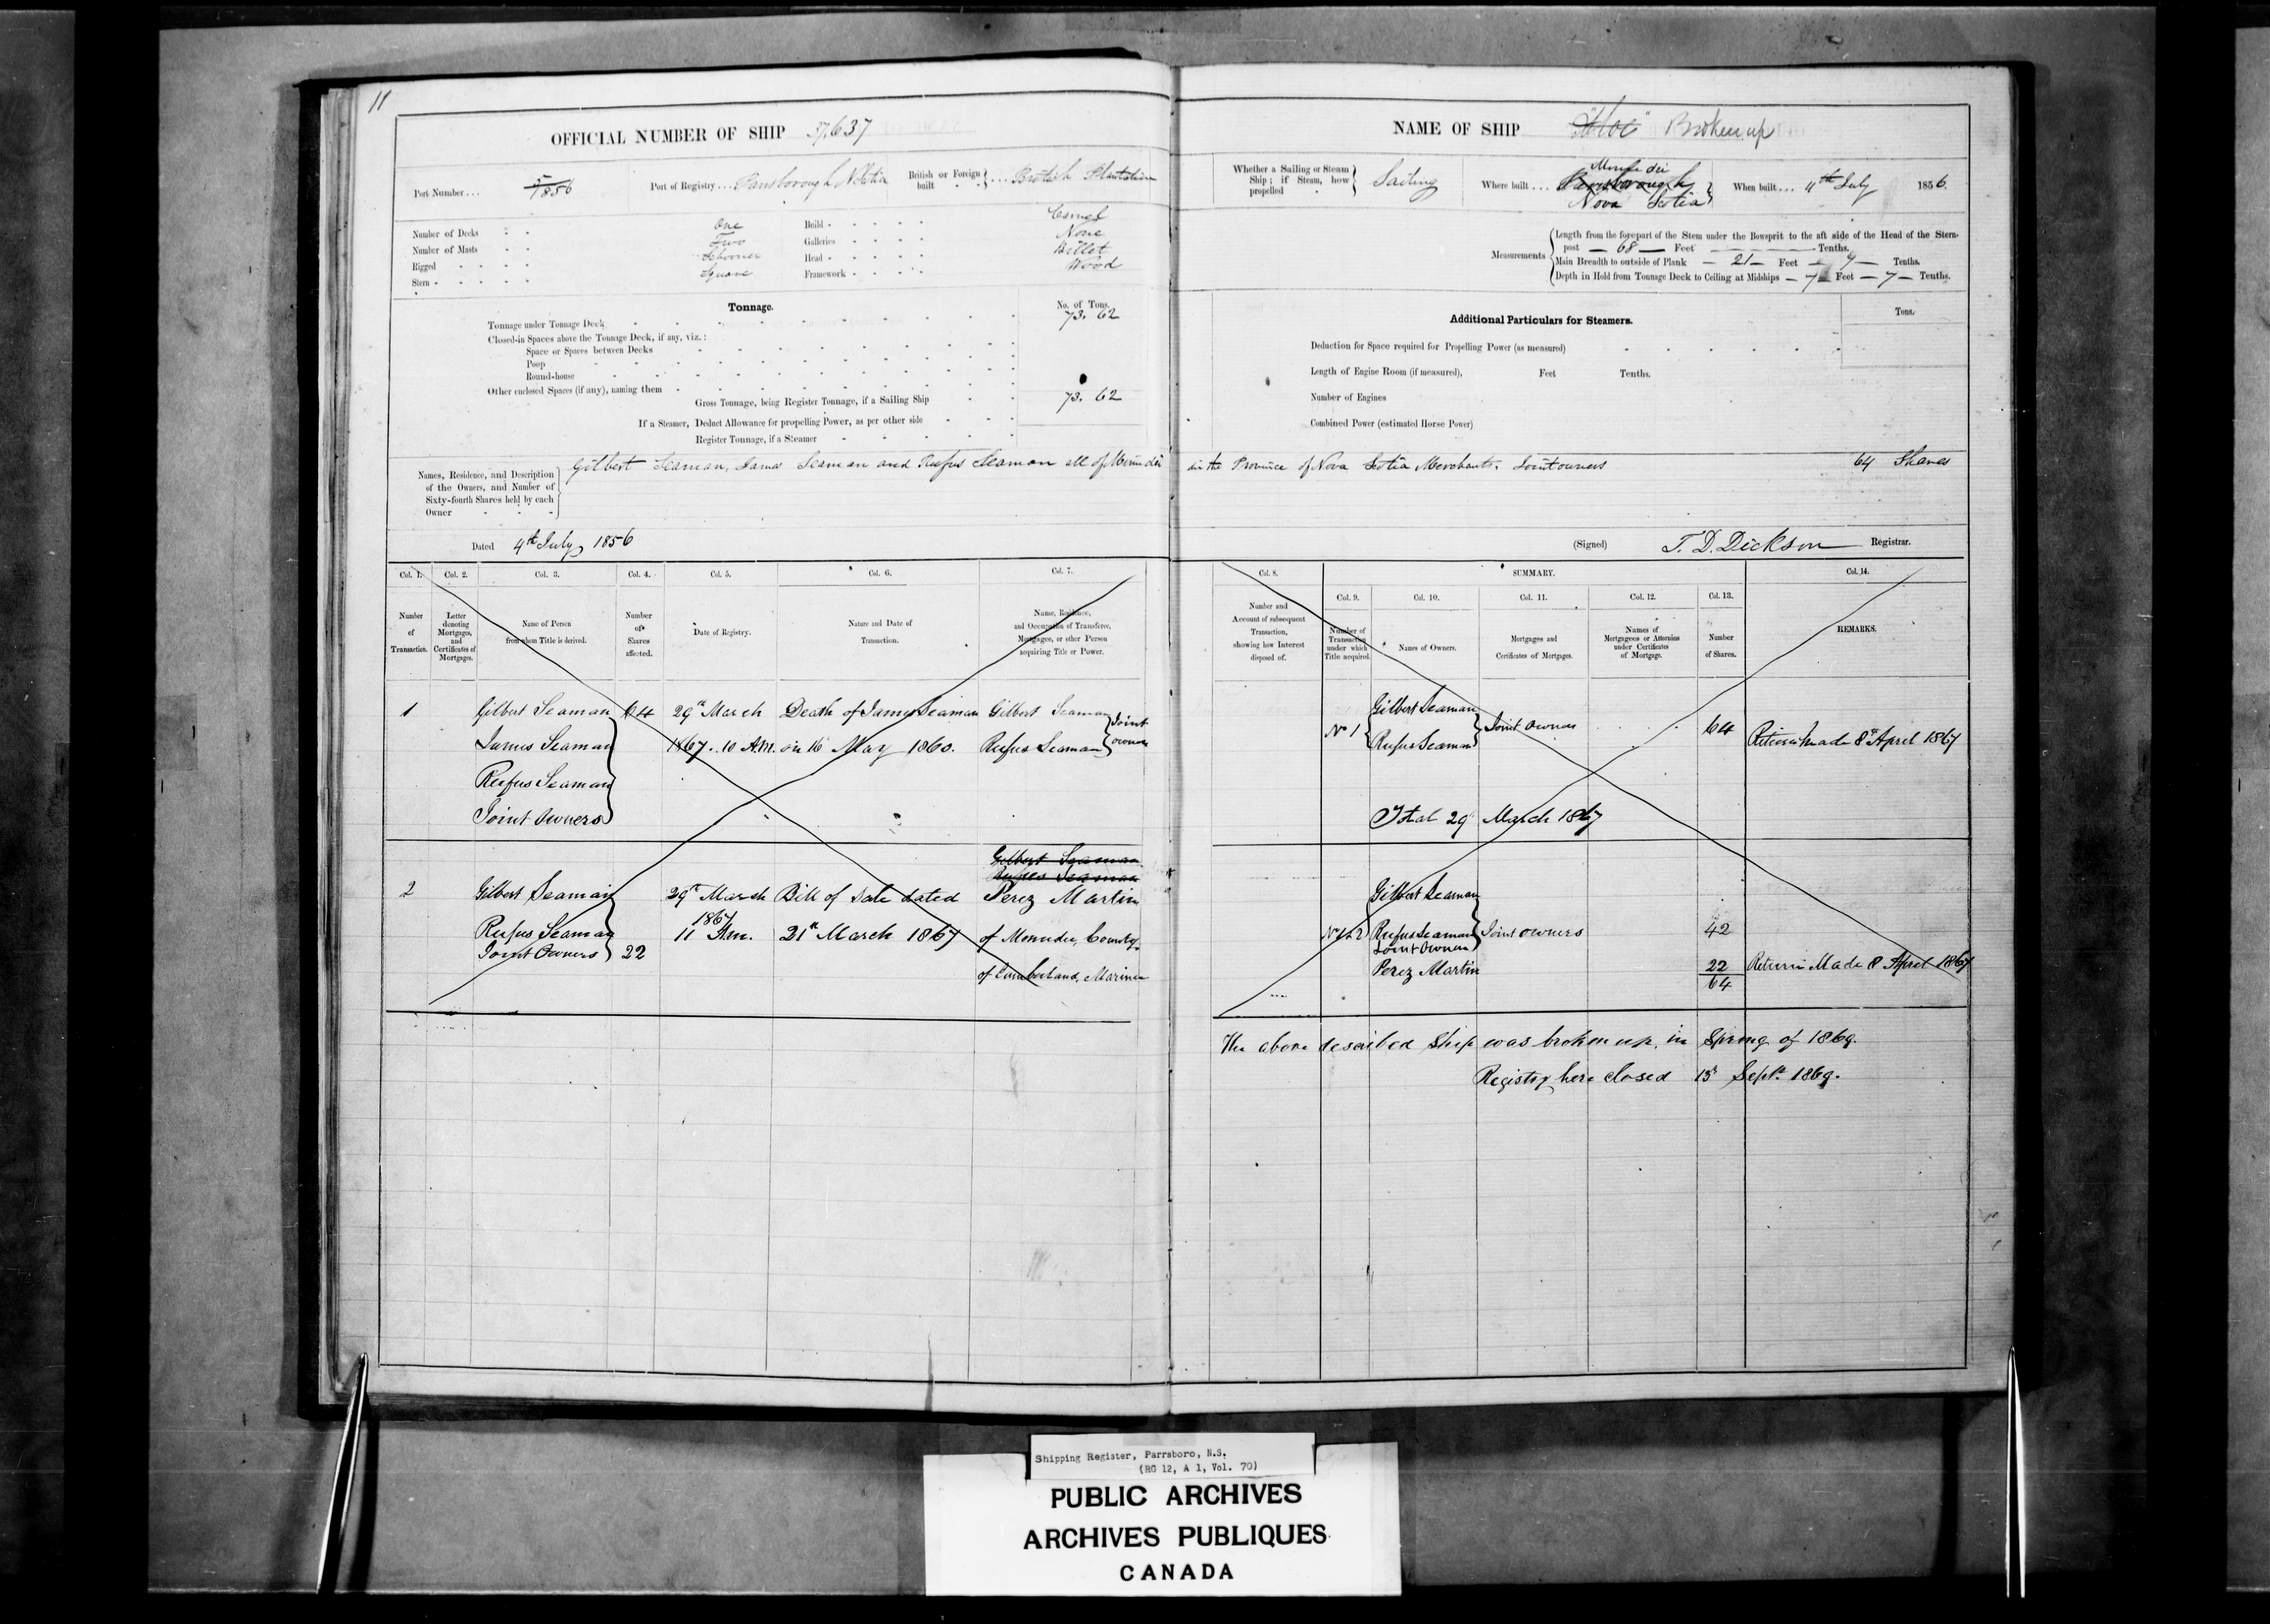 11
OFFICIAL NUMBER OF SHIP 37,637
NAME OF SHIP Broken up
Port Number... 5/1856
Port of Registry... Parrsborough N Scotia
British or Foreign built ... British Plantation
Whether a Sailing or Steam Ship; if Steam, how propelled Sailing
Where built... Minudie Parrsborough Nova Scotia
When built... 4th July 1856.
Number of Decks One
Number of Masts Two
Rigged Schooner
Stern Square
Build Carvel
Galleries None
Head Billet
Framework Wood
Measurements
Length from the forepart of the Stem under the Bowsprit to the aft side of the Head of the Stern-
post 68 Feet Tenths.
Main Breadth to outside of Plank 21 Feet 9 Tenths.
Depth in Hold from Tonnage Deck to Ceiling at Midships 7 Feet 7 Tenths.
Tonnage.
No. of Tons.
Tonnage under Tonnage Deck 73. 62
Closed-in Spaces above the Tonnage Deck, if any, viz.:
Space or Spaces between Decks
Poop
Round-house
Other enclosed Spaces (if any), naming them
Gross Tonnage, being Register Tonnage, if a Sailing Ship 73. 62
If a Steamer, Deduct Allowance for propelling Power, as per other side
Register Tonnage, if a Steamer
Additional Particulars for Steamers.
Tons.
Deduction for Space required for Propelling Power (as measured)
Length of Engine Room (if measured), Feet Tenths.
Number of Engines
Combined Power (estimated Horse Power)
Names, Residence, and Description
of the Owners, and Number of
Sixty-fourth Shares held by each
Owner
Gilbert Seaman, James Seaman and Rufus Seaman all of Minudie in the Province of Nova Scotia Merchants. Joint owners 64 Shares
Dated 4th July, 1856
(Signed) T. D. Dickson Registrar.
Col. 1. Col. 2. Col. 3. Col. 4. Col. 5. Col. 6. Col. 7.
Number of Transaction.
Letter denoting Mortgages, and Certificates of Mortgage.
Name of Person from whom Title is derived.
Number of Shares affected.
Date of Registry.
Nature and Date of Transaction.
Name, Residence, and Occupation of Transferee, Mortgagee, or other Person acquiring Title or Power.
Col. 8. SUMMARY. Col. 14.
Col. 9. Col. 10. Col. 11. Col. 12. Col. 13.
Number and Account of subsequent Transaction, showing how Interest disposed of.
Number of Transaction under which Title acquired.
Names of Owners.
Mortgages and Certificates of Mortgages.
Names of Mortgagees or Attornies under Certificates of Mortgage.
Number of Shares.
REMARKS.
1 Gilbert Seaman 64 29th March Death of James Seaman Gilbert Seaman Joint
James Seaman 1867. 10 A.M. on 16 May 1860. Rufus Seaman owners
Rufus Seaman
Joint Owners
No 1 Gilbert Seaman
Rufus Seaman Joint Owners 64 Return Made 8th April 1867
Total 29 March 1867
Gilbert Seaman
Rufus Seaman
2 Gilbert Seaman 29th March Bill of Sale dated Perez Martin
Rufus Seaman 1867 11 A.m. 21st March 1867 of Menudie, County
Joint Owners 22
of Cumberland, Mariner
Gilbert Seaman
No 1 & 2 Rufus Seaman Joint owners 42
Joint Owners
Perez Martin 22 Return Made 8 April 1867
64
The above described Ship was broken up, in Spring of 1869.
Registry here closed 15th Sept. 1869.
Shipping Register, Parrsboro, N.S.
(RG 12, A 1, Vol. 70)
PUBLIC ARCHIVES
ARCHIVES PUBLIQUES
CANADA